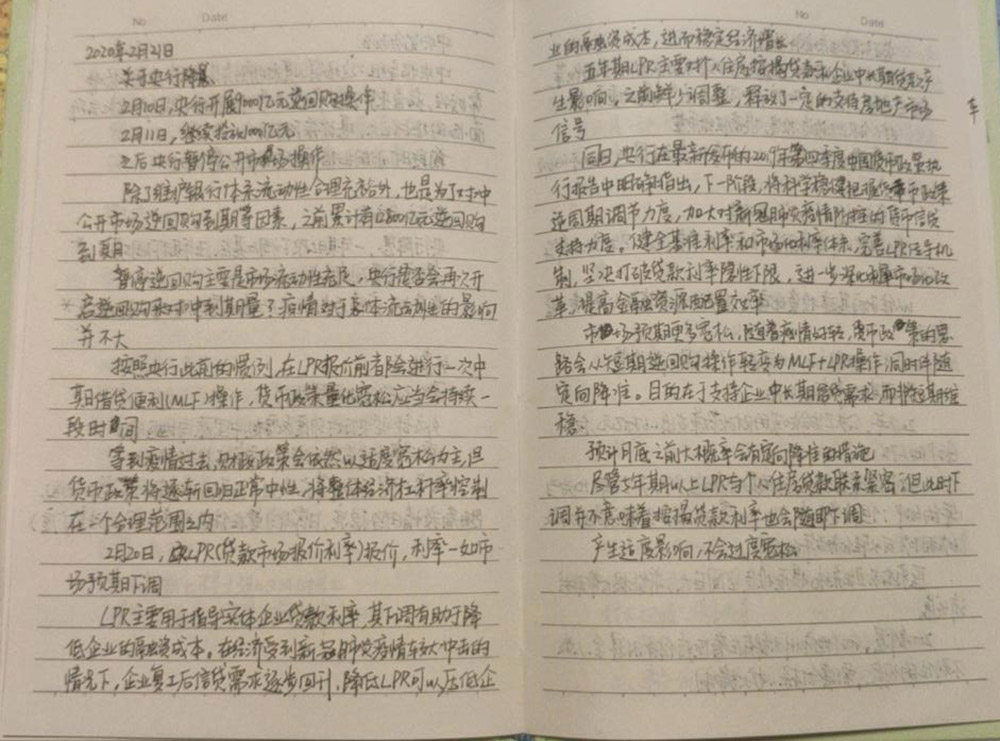 No
Date
2020年2月21日
关于央行降息
2月10日,央行开展9000亿元逆回购操作
2月11日,继续投放1000亿元
之后央行暂停公开市场操作
除了维护银行体系流动性合理充裕外,也是为了对冲
公开市场逆回购到期等因素,之前累计有亿元逆回购
到期
暂停逆回购主要是市场流动性充足,央行是否会再次开
启逆回购来对冲到期量?疫情对于总体流动性的影响
并不大
按照央行此前的惯例,在LPR报价前者都会进行一次中
期借贷便利(MLF)操作,货币政策量化宽松应当会持续一
段时间
等到疫情过去,财政政策会依然以适度宽松为主,但
货币政策将逐渐回归正常中性,将整体经济杠杆率控制
在一个合理范围之内
2月20日,LPR(贷款市场报价利率)报价,利率一如市
场预期下调
LPR主要用于指导实体企业贷款利率,其下调有助于降
低企业的融资成本。在经济受到新冠肺炎疫情较大冲击的
情况下,企业复工后信贷需求逐步回升,降低LPR可以压低企
No
Date
业的融资成本,进而稳定经济增长
五年期LPR主要对个人住房按揭贷款和企业中长期贷款产
生影响,之前鲜少调整,释放了一定的支持房地产市场
信号
同日,央行在最新发布的2019年第四季度中国货币政策执
行报告中明确指出,下一阶段,将科学稳健把握货币政策
逆周期调节力度,加大对新冠肺炎疫情防控的货币信贷
支持力度。健全基准利率和市场化利率体系,完善LPR传导机
制,坚决打破贷款利率隐性下限,进一步深化利率市场化改
革,提高金融资源配置效率
市场预期更多宽松,随着疫情好转,货币政策的思
路会从短期逆回购操作转变为MLF+LPR操作,同时伴随
定向降准。目的在于支持企业中长期信贷需求,而非短期维
稳
预计月底之前大概率会有定向降准的措施
尽管5年期以上LPR与个人住房贷款联系紧密,但此时下
调并不意味着按揭贷款利率也会随即下调
产生适度影响,不会过度宽松